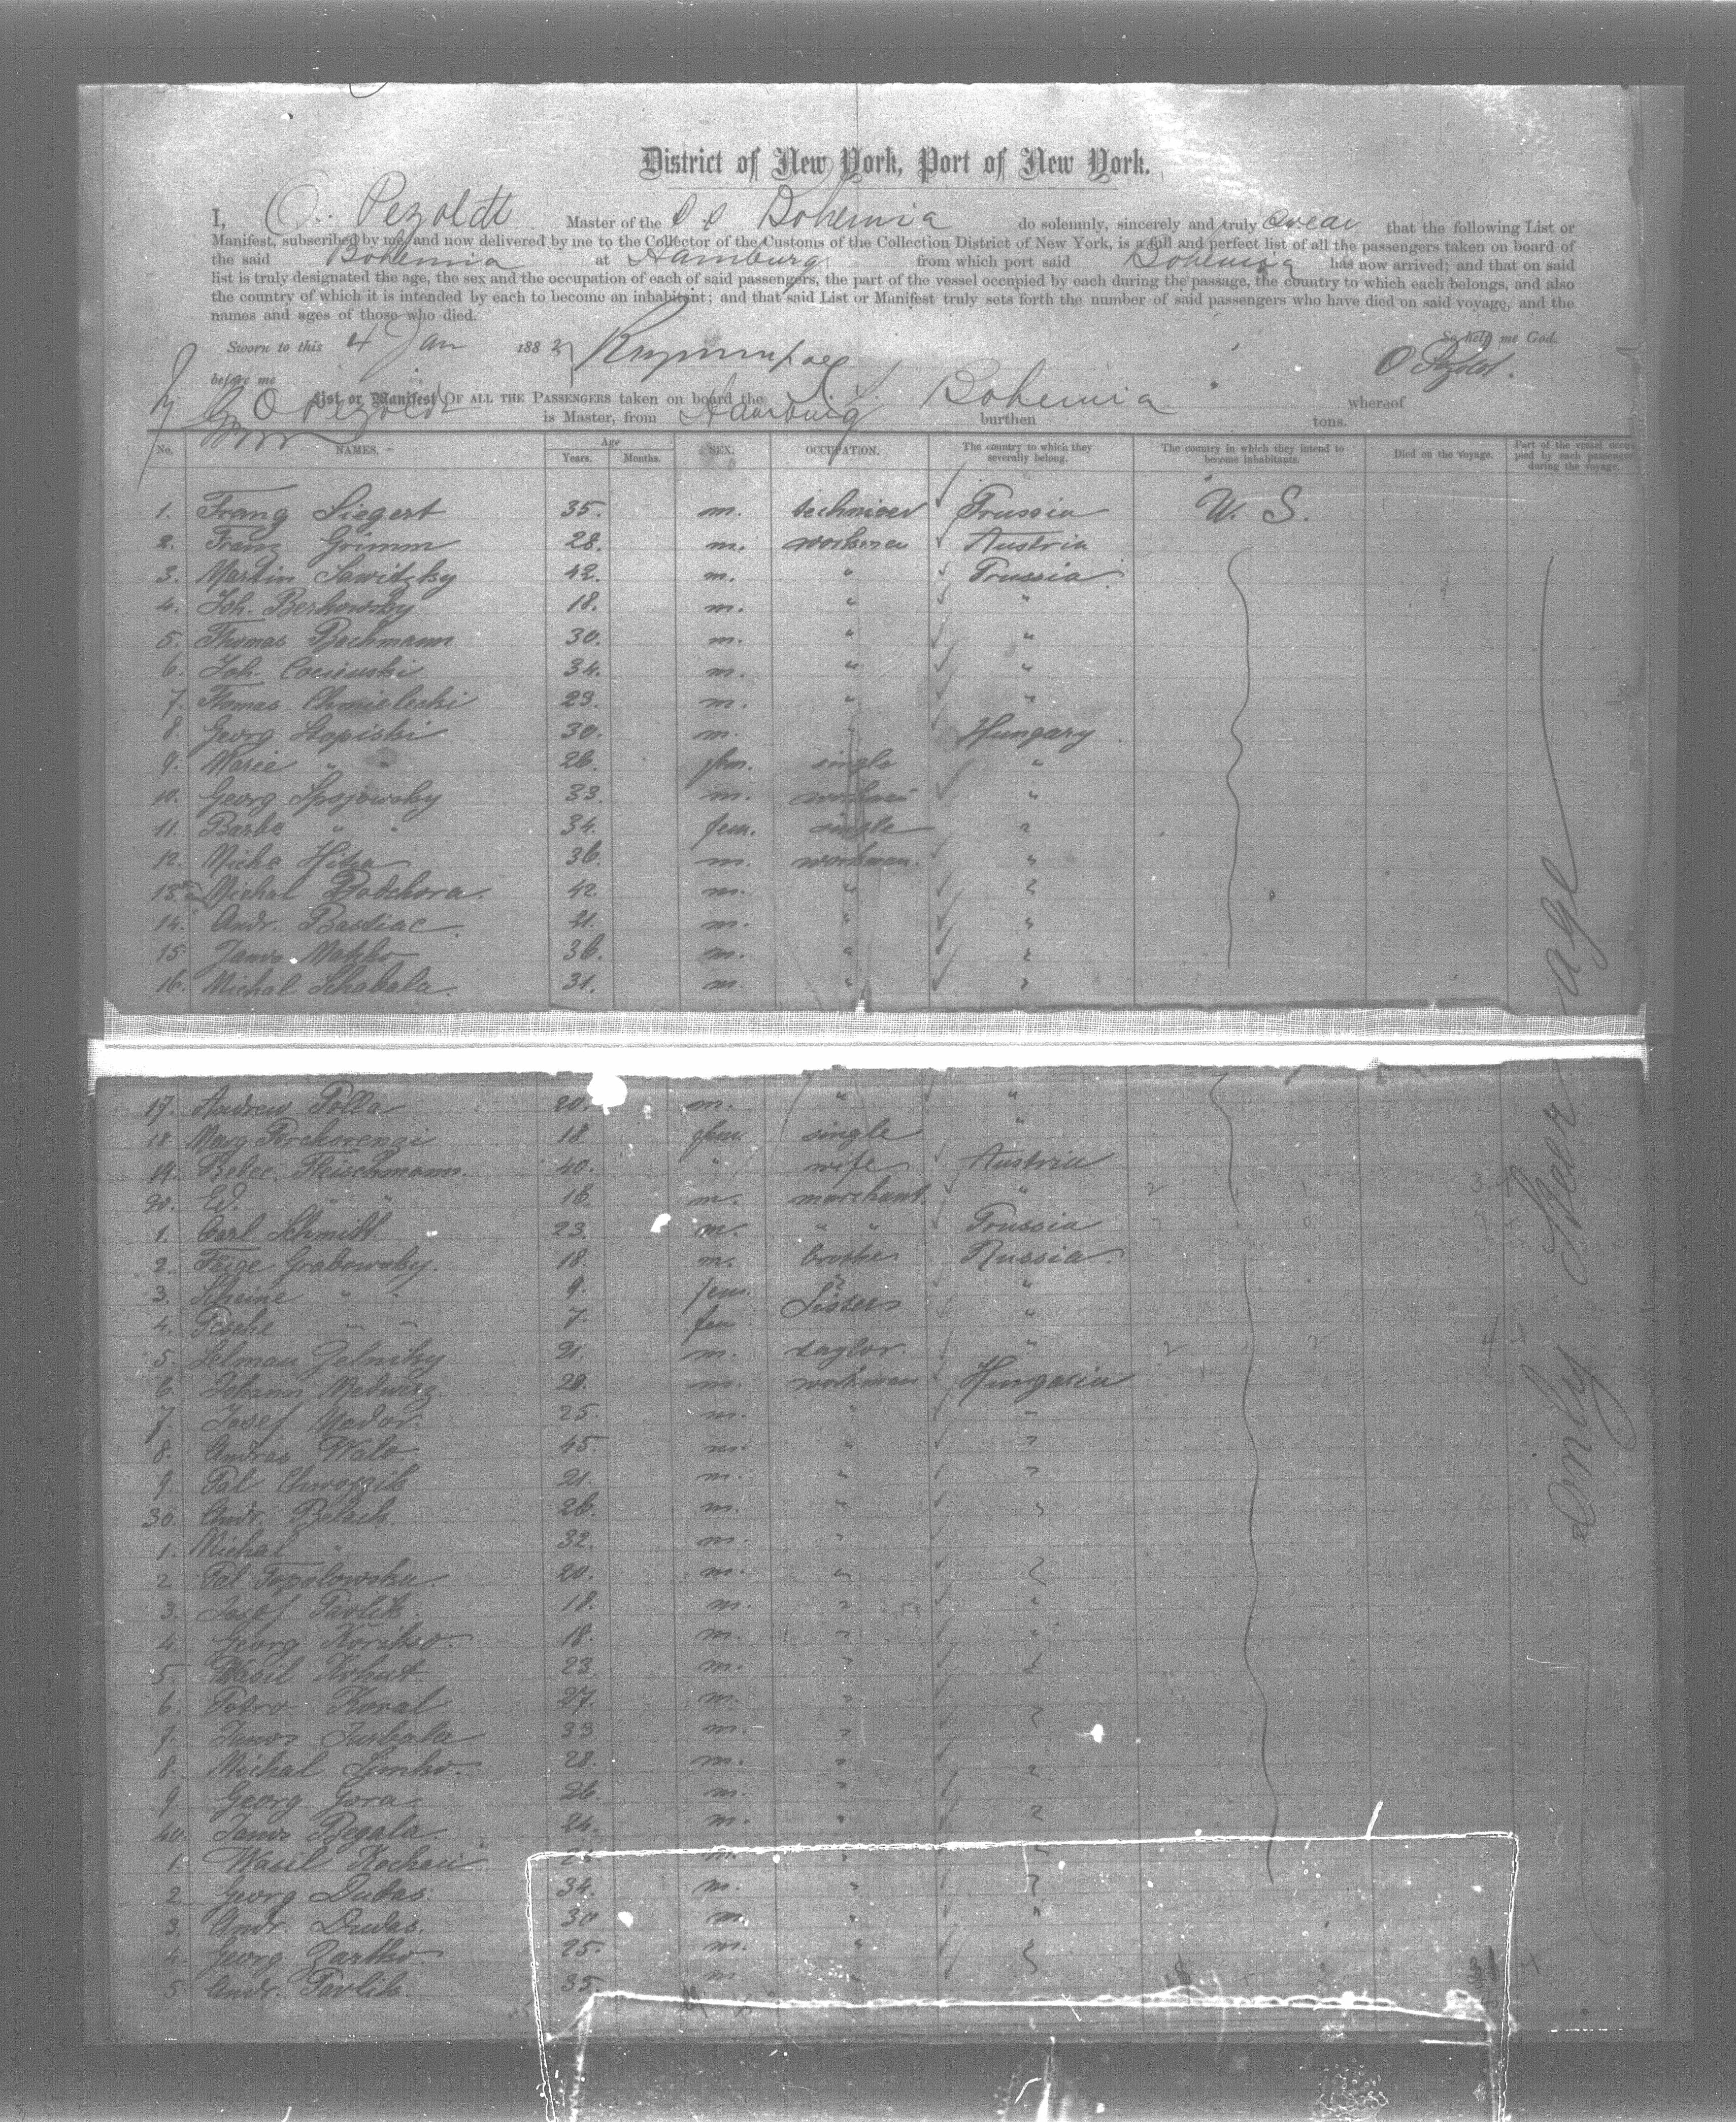 District of New York, Port of New York.
I, O. Pezoldt Master of the S S Bohemia do solemnly, sincerely and truly swear that the following List or
Manifest, subscribed by me, and now delivered by me to the Collector of the Customs of the Collection District of New York, is a full and perfect list of all the passengers taken on board of
the said Bohemia at Hamburg from which port said Bohemia has now arrived; and that on said
list is truly designated the age, the sex and the occupation of each of said passengers, the part of the vessel occupied by each during the passage, the country to which each belongs, and also
the country of which it is intended by each to become an inhabitant; and that said List or Manifest truly sets forth the number of said passengers who have died on said voyage, and the
names and ages of those who died.
So help me God.
Sworn to this 4 Jan 1882
before me
O Pezoldt.
List or Manifest OF ALL THE PASSENGERS taken on board the Bohemia whereof
O Pezoldt is Master, from Hamburg burthen tons.
No. NAMES. Age Years. Months. SEX. OCCUPATION. The country to which they severally belong. The country in which they intend to become inhabitants. Died on the voyage. Part of the vessel occupied by each passenger during the voyage.
1. Franz Siegert 35. m. Prussia U. S.
2. Franz Grimm 28. m. Austria
3. Martin Sawitzky 42. m. " Prussia
4. Joh. Berkowsky 18. m. " "
5. Thomas Bachmann 30. m. " "
6. Joh. 34. m. " "
7. Thomas Chmielecki 23. m. " "
8. Georg Stopiski 30. m. " Hungary
9. Marie " " 26. fem. single "
10. Georg Spojowsky 33. m. "
11. Barbe " " 34. fem. single "
12. Micha Hitza 36. m. workman. "
13. Michal Dodchora. 42. m. " "
14. Andr. Bassiac. 21. m. " "
15. Janos Matzko 36. m. " "
16. Michal Schabala. 31. m. " "
17. Andrew Polla 20. m. " "
18. Marg. 18. fem. single "
19. Rebec. Fleischmann. 40. " wife Austria
20. Ed. " " 16. m. marchant. "
1. Carl Schmidt. 23. m. " " Prussia
2. Feige Grabowsky. 18. m. brother Russia.
3. Scheine " " 9. fem. Sisters "
4. Pesche " " 7. fem. "
5. Selman Zelnitzky 21. m. taylor. "
6. Johann Medwesz. 20. m. workman Hungaria
7. Josef Mador. 25. m. " "
8. Andras Walo. 45. m. " "
9. Pal Chwojzik 21. m. " "
30. Andr. Belach. 26. m. " "
1. Michal " 32. m.
2 Pal Topolowska. 20. m. " "
3. Josef Pavlik. 18. m. " "
4. Georg Koritzo. 18. m. " "
5. Wasil Kohut. 23. m. " "
6. Petro Koval 27. m. " "
7. Janos Turbala 33. m. "
8. Michal Simko. 28. m. " "
9 Georg Gora. 26. m. "
40. Janos Begala. 24. m. " "
1. Wasil m. " "
2 Georg Dudas. 34. m. " "
3. Andr. Dudas. 30 m. " "
4. Georg Zartko 25. m. " "
5. Andr. Pavlik. 35. m.
Only Steerage